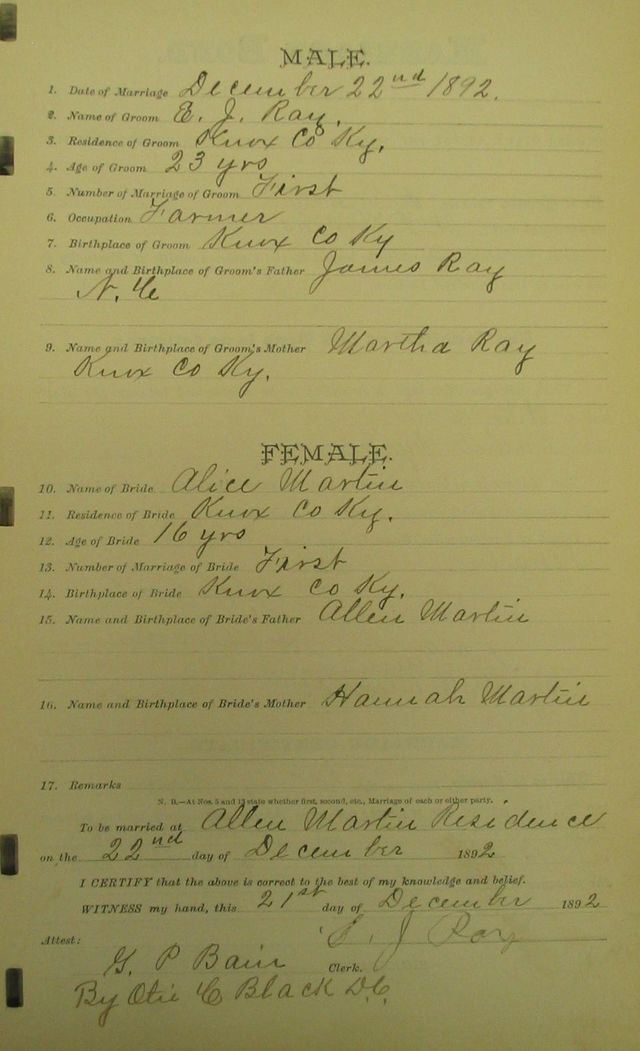 MALE.
1. Date of Marriage December 22nd 1892.
2. Name of Groom E. J. Ray.
3. Residence of Groom Knox Co Ky.
4. Age of Groom 23 yrs
5. Number of Marriage of Groom First
6. Occupation Farmer
7. Birthplace of Groom Knox Co Ky
8. Name and Birthplace of Groom's Father James Ray
N. C
9. Name and Birthplace of Groom's Mother Martha Ray
Knox Co Ky.
FEMALE.
10. Name of Bride Alice Martin
11. Residence of Bride Knox Co Ky.
12. Age of Bride 16 yrs
13. Number of Marriage of Bride First
14. Birthplace of Bride Knox Co Ky.
15. Name and Birthplace of Bride's Father Allen Martin
16. Name and Birthplace of Bride's Mother Hannah Martin
17. Remarks
N. B.—At Nos. 5 and 13 state whether first, second, etc., Marriage of each or either party.
To be married at Allen Martin Residence
on the 22nd day of December 1892
I CERTIFY that the above is correct to the best of my knowledge and belief.
WITNESS my hand, this 21st day of December 1892
E. J Ray
Attest:
G. P Bain Clerk.
By Otis C Black D.C.